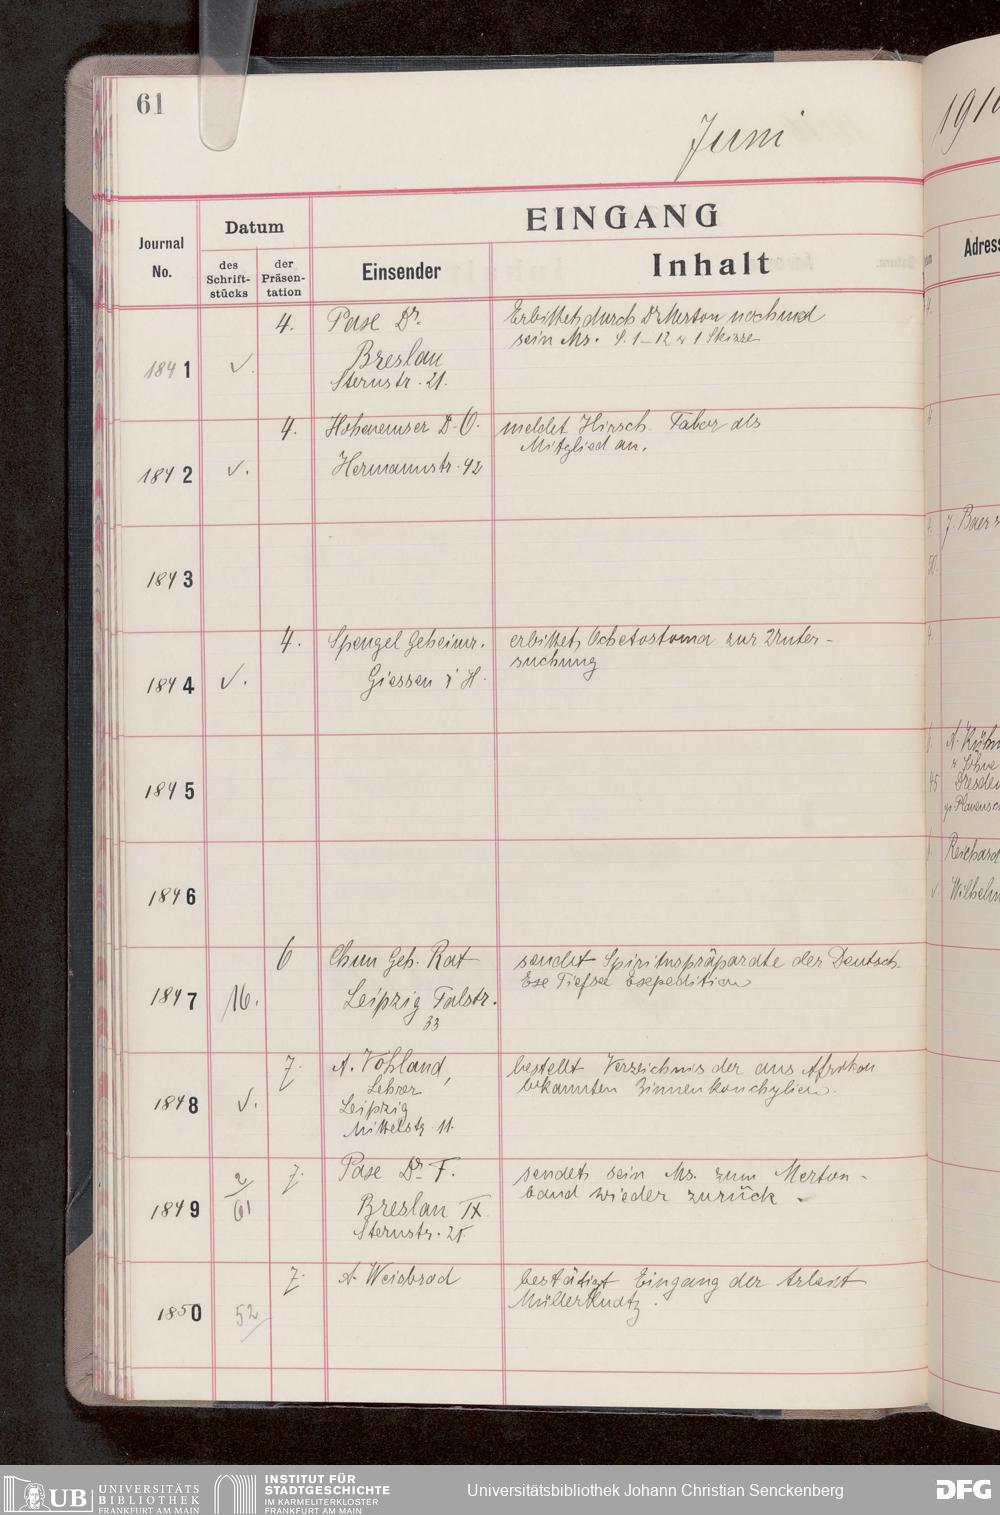 61
Juni
191
EINGANG
Journal
No.
Datum
des
Schrift-
stücks
der
Präsen-
tation
Einsender
Inhalt
Adress
1841
✓.
4.
Pase Dr.
Breslau
Sternstr. 21.
Erbittet durch Dr Merton nochmal
sein Ms. S. 1-12 u 1 Skizze
1842
✓.
4.
Hohenemser D. O.
Hermannstr. 42
meldet Hirsch Tabor als
Mitglied an.
1843
J. Baer
1844
✓.
4.
Spengel Geheimr.
Giessen i H.
erbittet Ochetostoma zur Unter-
suchung
1845
A. Kühn
u Söhne
Dresden
1846
Reichard
Wilhelm
1847
16.
6
Chun Geh. Rat
Leipzig Talstr.
33
sendet Spirituspräparate der Deutsch.
Tiefsee Exepedition
1848
✓.
7.
A. Vohland,
Lehrer
Leipzig
Mittelstr. 11.
bestellt Verzeichnis der aus Afrikan
bekannten Binnenkonchylien.
1849
2/61
7.
Pase Dr F.
Breslau IX
Sternstr. 21.
sendet sein Ms. zum Merton-
band wieder zurück.
1850
52/
7.
A. Weisbrod
bestätigt Eingang der Arbeit
Müllerknatz.
UB
UNIVERSITÄTS
BIBLIOTHEK
FRANKFURT AM MAIN
INSTITUT FÜR
STADTGESCHICHTE
IM KARMELITERKLOSTER
FRANKFURT AM MAIN
Universitätsbibliothek Johann Christian Senckenberg
DFG